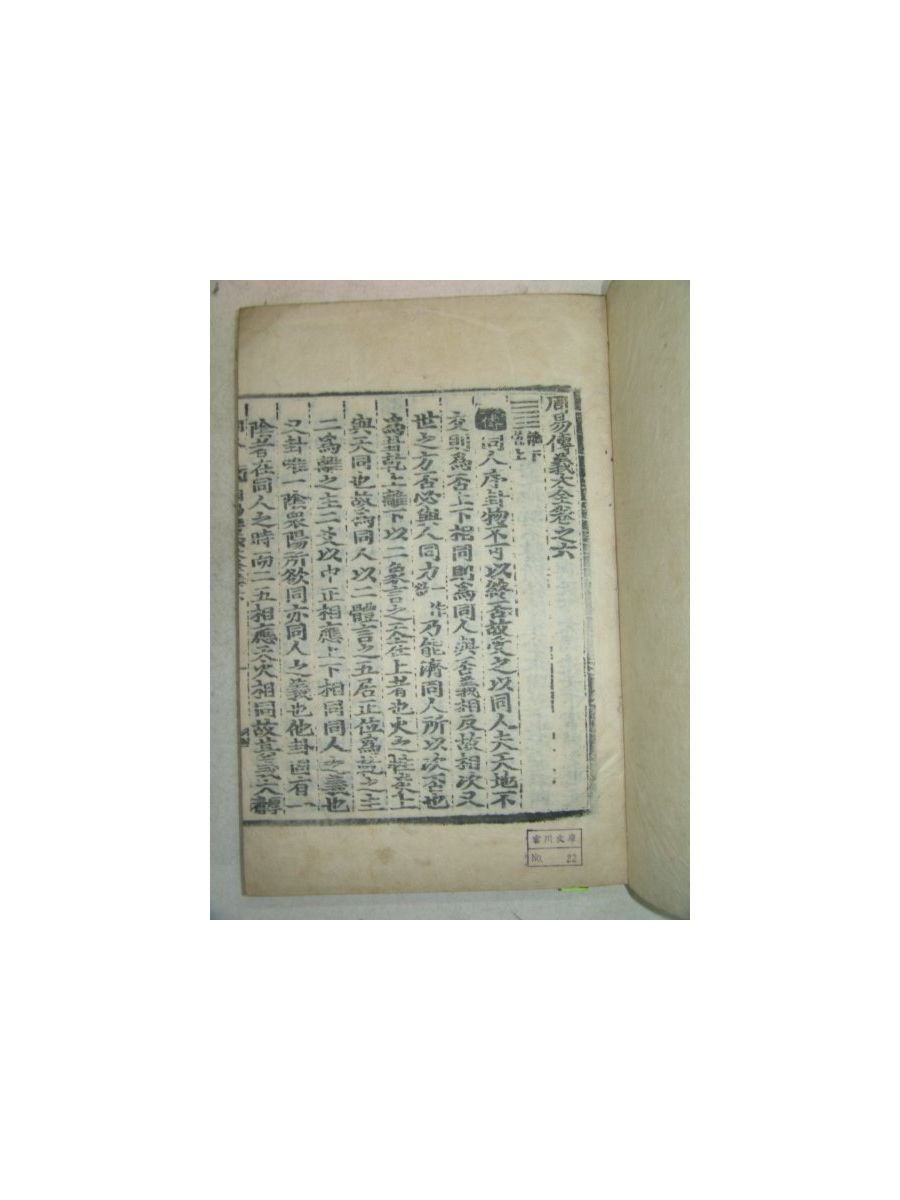 周易傳義大全卷之六
離下
乾上
傳 同人序卦物不可以終否故受之以同人夫天地不
交則爲否上下相同則爲同人與否義相反故相次又
世之方否必與人同力乃能濟同人所以次否也
爲卦乾上離下以二象言之天在上者也火之性炎上
與天同也故爲同人以二體言之五居正位爲乾之主
二爲離之主二爻以中正相應上下相同同人之義也
又卦唯一陰衆陽所欲同亦同人之義也他卦固有一
陰者在同人之時而二五相應天火相同故其義大
川文庫
No. 22